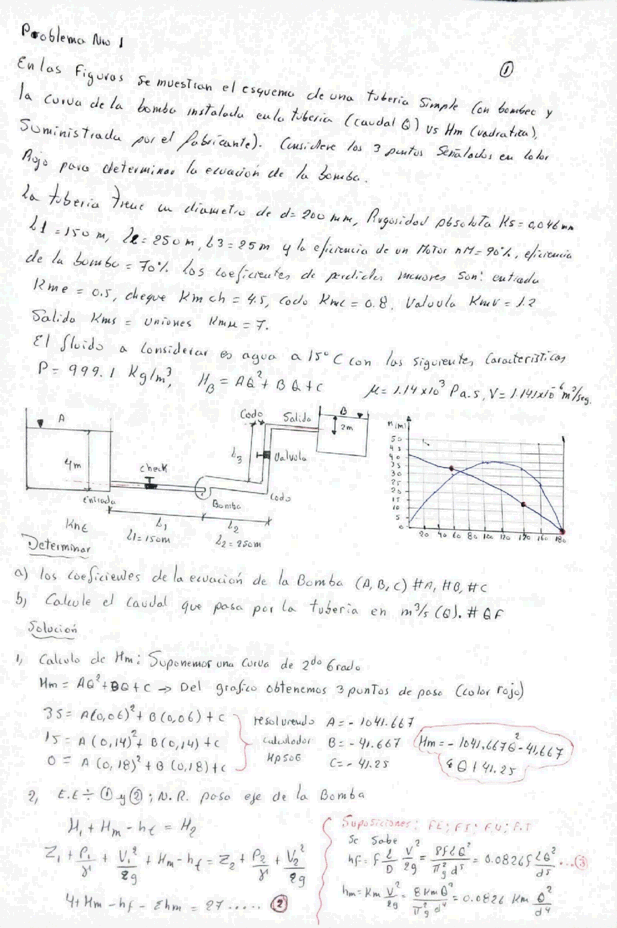 Problema Nro 1
①
En las Figuras se muestran el esquema de una tuberia simple con bombeo y
la curva de la bomba instalada en la tuberia (caudal Q) vs Hm (cuadratica),
Suministrada por el fabricante). Considere los 3 puntos señalados en color
Rojo para determinar la ecuación de la bomba.
La tuberia tiene un diametro de d= 200 mm, Rugosidad absoluta Ks= 0,046 mm
L1 = 150 m, L2 = 250 m, L3 = 25 m y la eficiencia de un Motor nM = 90%, eficiencia
de la bomba = 70% Los coeficientes de perdidas menores son: entrada
Kme = 0.5, cheque Km ch = 4.5, codo Kmc = 0.8, Valvula Kmv = 12
Salida Kms = uniones Kmu = 7.
El fluido a considerar es agua a 15°C con las siguientes caracteristicas
P = 999.1 Kg/m³, H_B = AQ² + BQ + C μ = 1.14x10³ Pa.s, V = 1.141x10⁻⁶ m²/seg.
A
4m
Entrada
KnE
check
L1
L1 = 150m
Bomba
L2
L2 = 250m
Codo
L3
Valvula
Codo
Salida
B
2m
H(m)
50
45
40
35
30
25
20
15
10
5
0
20 40 60 80 100 120 140 160 180
Determinar
a) los coeficientes de la ecuación de la Bomba (A, B, C) #A, #B, #C
b) Calcule el caudal que pasa por la tuberia en m³/s (Q). # QF
Solución
1, Calculo de Hm: Suponemos una curva de 2do Grado
Hm = AQ² + BQ + C → Del grafico obtenemos 3 puntos de paso (color rojo)
35 = A(0,06)² + B(0,06) + C
15 = A (0,14)² + B(0,14) + C
0 = A (0,18)² + B (0,18) + C
resolviendo
calculador
Hp50G
A = - 1041.667
B = - 41.667
C = - 41.25
Hm = - 1041.667Q² - 41,667
Q + 41.25
2, E.E ÷ ① y ②; N.R. paso eje de la Bomba
H1 + Hm - hf = H2
Z1 + P1/γ + V1²/2g + Hm - hf = Z2 + P2/γ + V2²/2g
4 + Hm - hf - Σhm = 27 ..... ②
Suposiciones: F.E; F.S; F.U; F.T
Se Sabe
hf = f L/D V²/2g = 8fLQ²/π²g d⁵ = 0.0826f LQ²/d⁵ ...③
hm = Km V²/2g = 8KmQ²/π²g d⁴ = 0.0826 Km Q²/d⁴